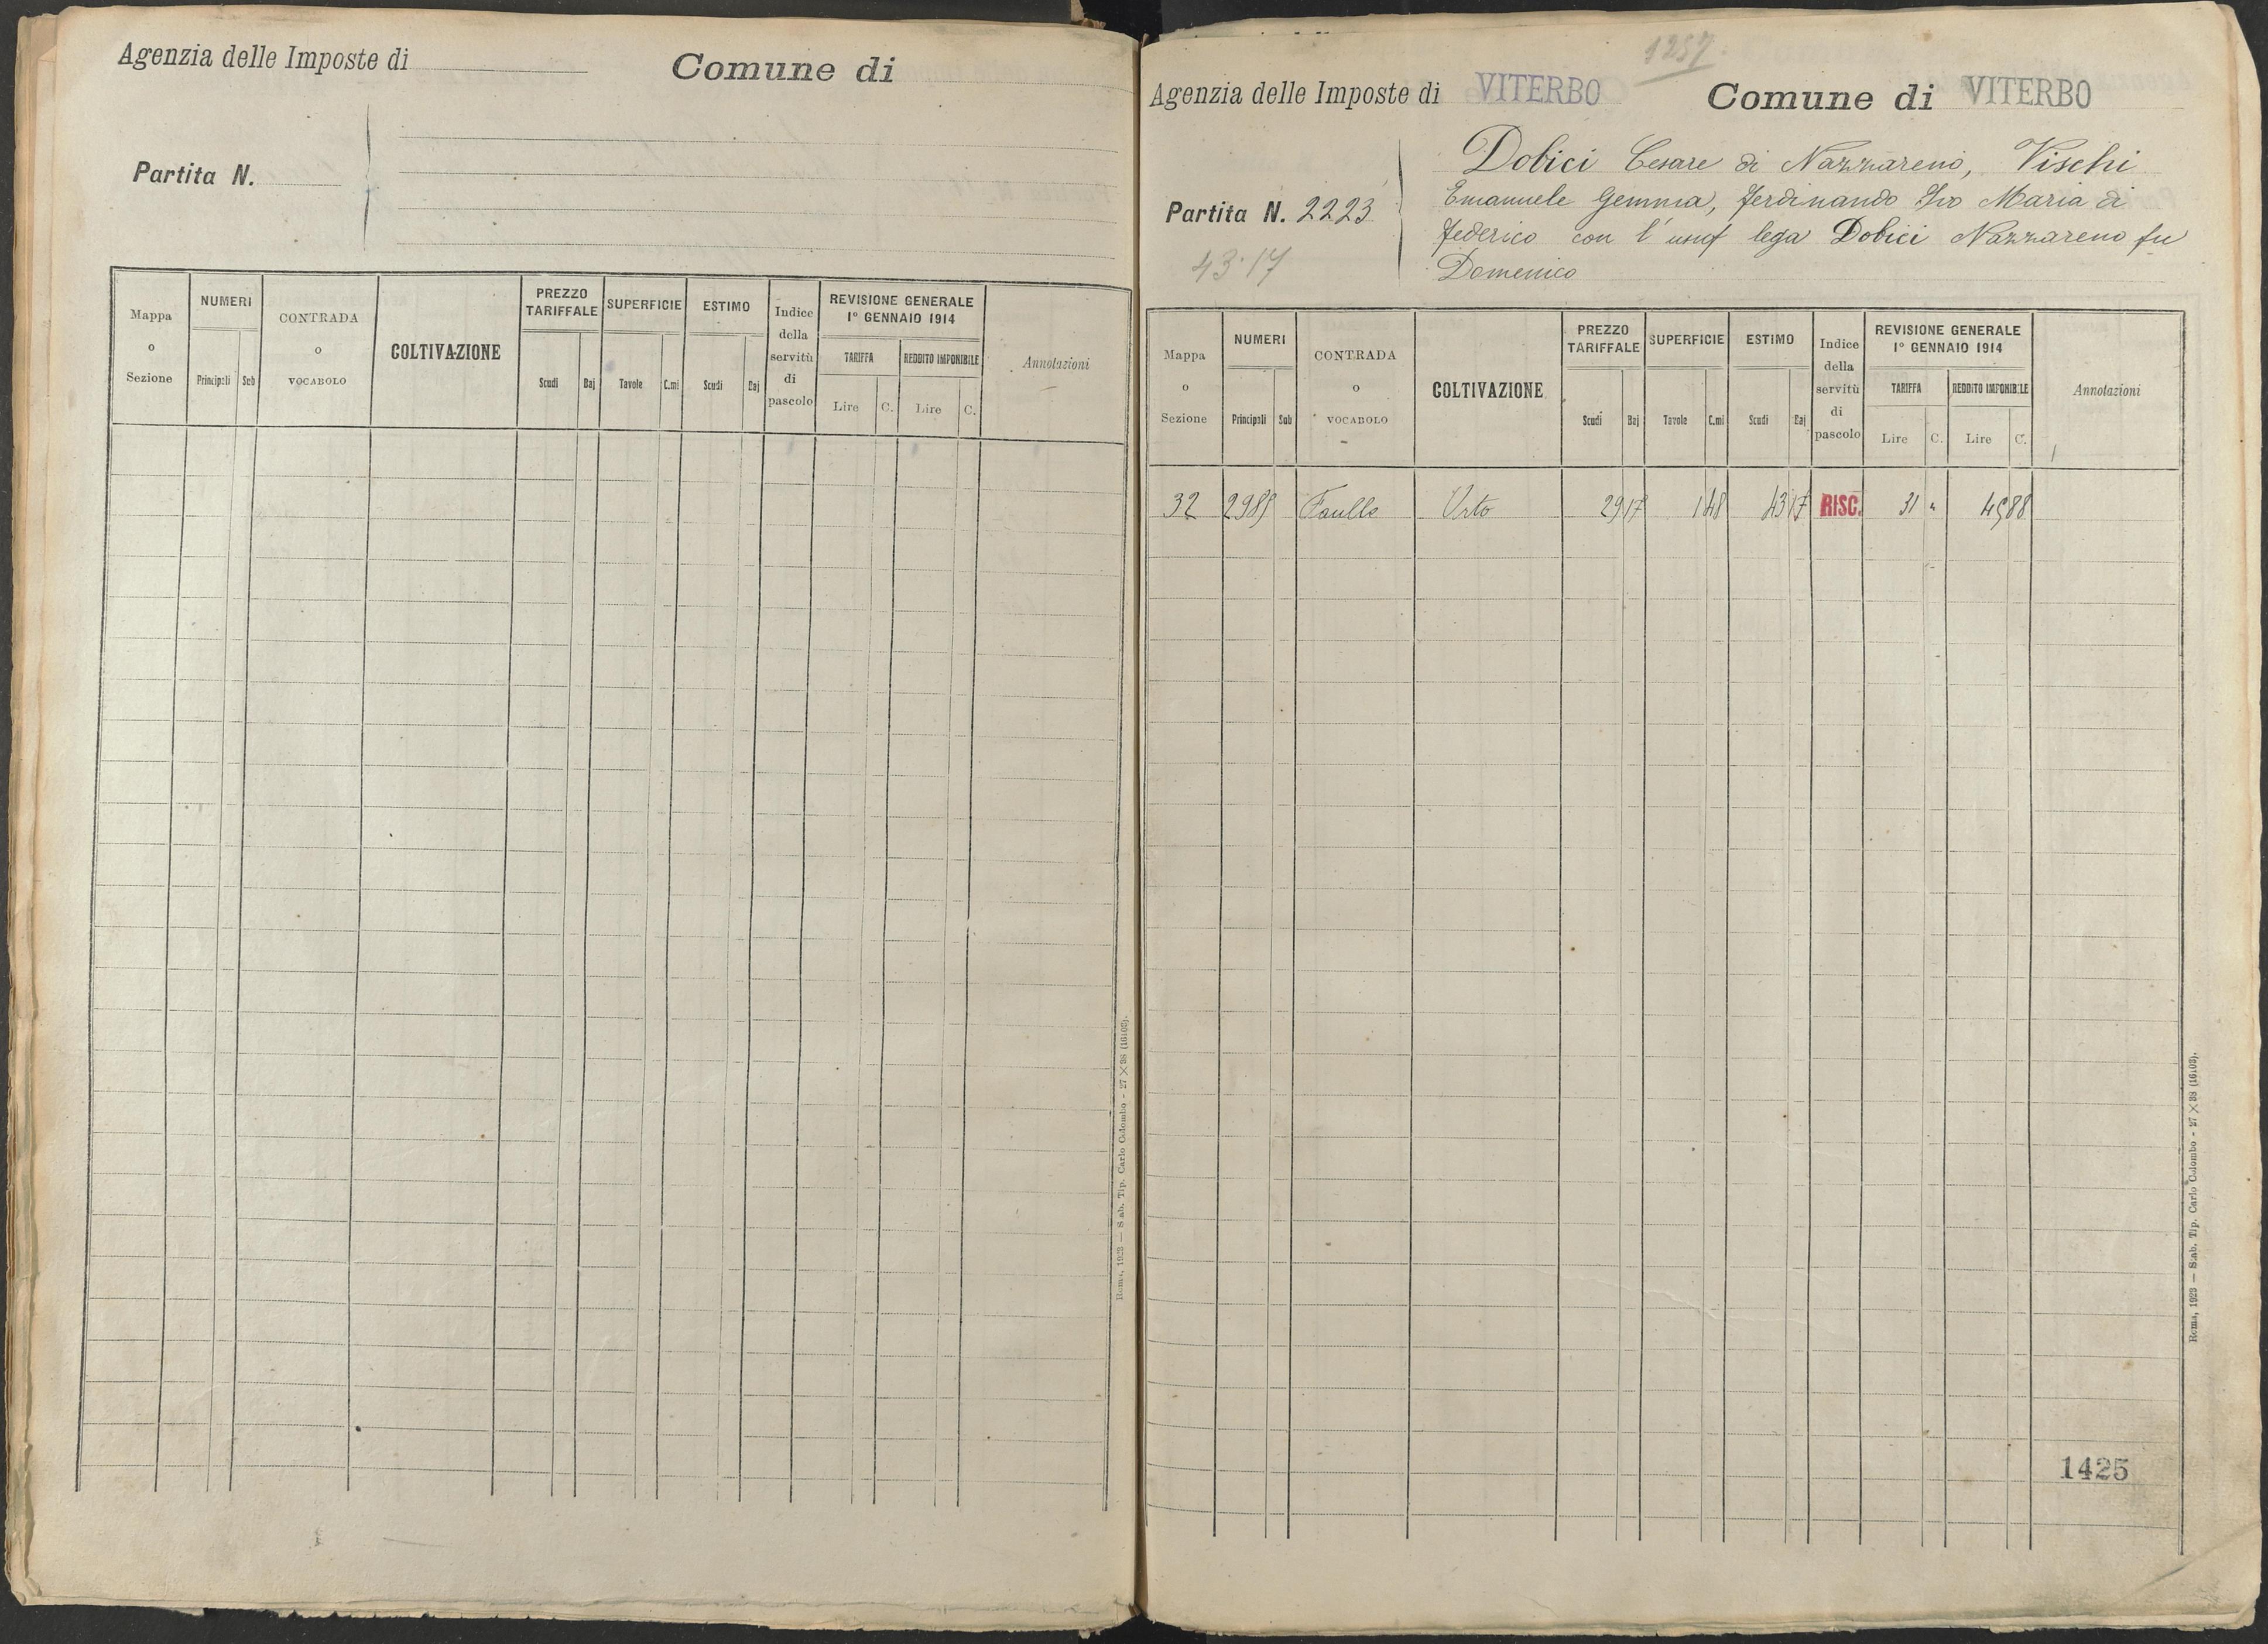 Agenzia delle Imposte di
Comune di
Partita N.
Mappa o Sezione
NUMERI
Principali Sub
CONTRADA o VOCABOLO
COLTIVAZIONE
PREZZO TARIFFALE
Scudi Baj
SUPERFICIE
Tavole C.mi
ESTIMO
Scudi Baj
Indice della servitù di pascolo
REVISIONE GENERALE
1º GENNAIO 1914
TARIFFA
Lire C.
REDDITO IMPONIBILE
Lire C.
Annotazioni
Roma, 1923 — Stab. Tip. Carlo Colombo - 27 × 38 (16103).
1257
Agenzia delle Imposte di VITERBO
Comune di VITERBO
Partita N. 2223
43.17
Dobici Cesare di Nazzareno, Vischi
Emanuele Gemma, Ferdinando Ivo Maria di
Federico con l'usuf lega Dobici Nazzareno fu
Domenico
Mappa o Sezione
NUMERI
Principali Sub
CONTRADA o VOCABOLO
COLTIVAZIONE
PREZZO TARIFFALE
Scudi Baj
SUPERFICIE
Tavole C.mi
ESTIMO
Scudi Baj
Indice della servitù di pascolo
REVISIONE GENERALE
1º GENNAIO 1914
TARIFFA
Lire C.
REDDITO IMPONIBILE
Lire C.
Annotazioni
32 2985 Faulle Orto 29 17 1 48 43 17 RISC. 31 " 45 88
1425
Roma, 1923 — Stab. Tip. Carlo Colombo - 27 × 38 (16103).